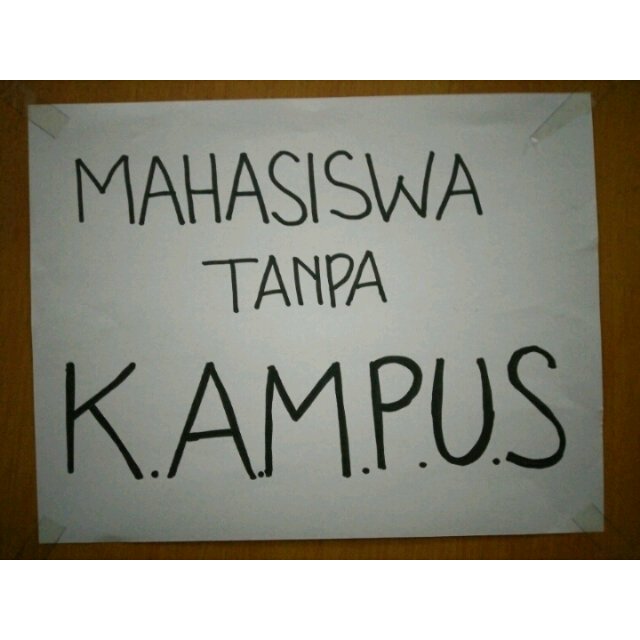 MAHASISWA
TANPA
K.A.M.P.U.S